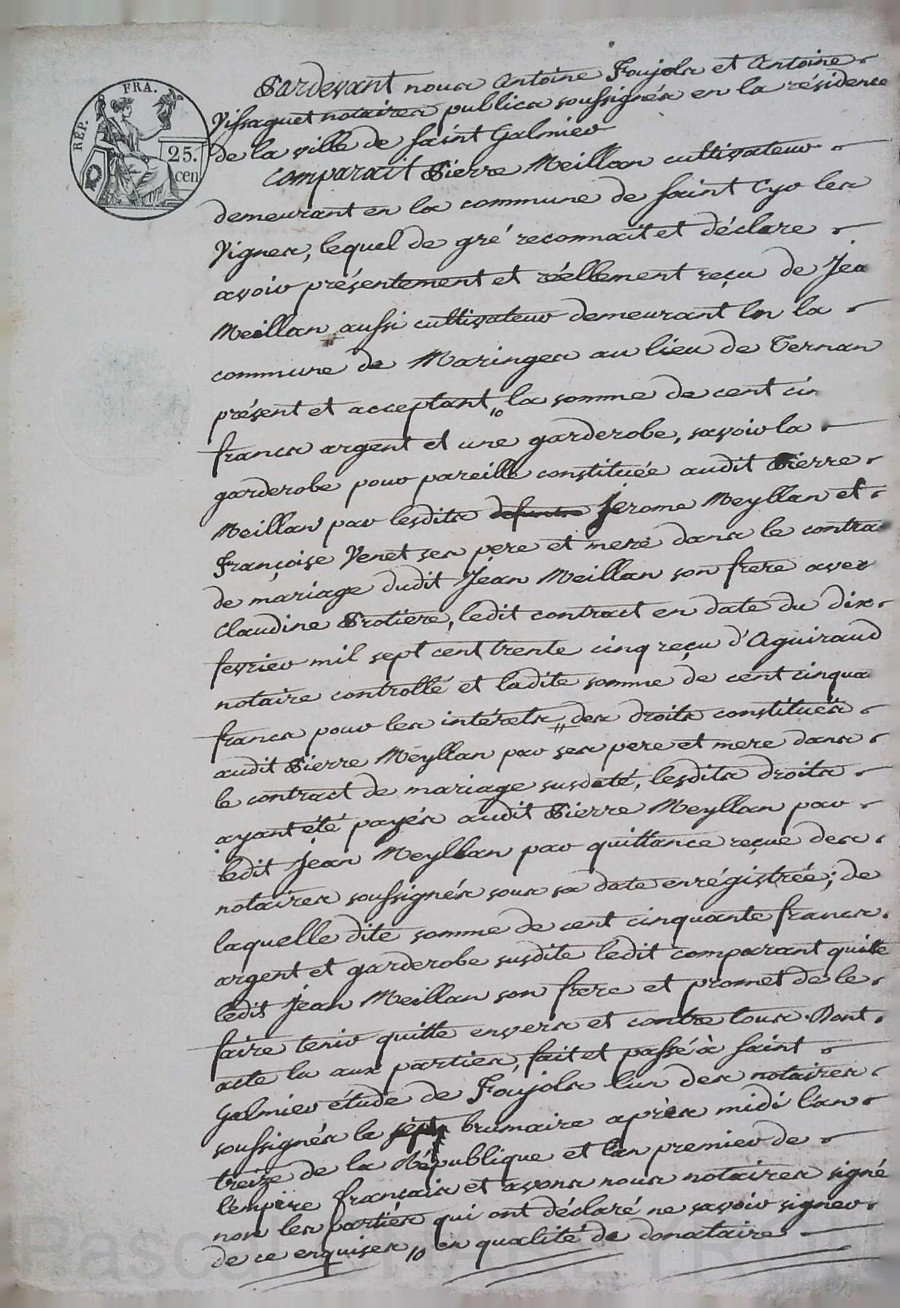 RÉP. FRA.
25.
cen
Pardevant nous Antoine Foujols et Antoine
Vissaguet notaires publics soussignés en la résidence
de la ville de saint Galmier
comparait Pierre Meillan cultivateur
demeurant en la commune de saint Cyr les
Vignes, lequel de gré reconnait et déclare
avoir présentement et réellement reçu de Jea
Meillan aussi cultivateur demeurant en la
commune de Maringes au lieu de Ternan
présent et acceptant la somme de cent cin
francs argent et une garderobe, savoir la
garderobe pour pareille constituée audit Pierre
Meillan par lesdits defunts Jerome Meyllan et
Françoise Venet ses pere et mere dans le contra
de mariage dudit Jean Meillan son frere avec
Claudine Protière, ledit contract en date du dix
fevrier mil sept cent trente cinq reçu d'Aguiraud
notaire controllé et ladite somme de cent cinqua
francs pour les intérets des droits constitués
audit Pierre Meyllan par ses pere et mere dans
le contract de mariage susdaté, lesdits droits
ayant été payés audit Pierre Meyllan par
ledit Jean Meyllan par quittance reçue des
notaires soussignés sous sa date enrégistrée; de
laquelle dite somme de cent cinquante francs
argent et garderobe susdite ledit comparant quitte
ledit Jean Meillan son frere et promet de le
faire tenir quitte envers et contre tous. Dont
acte lu aux parties, fait et passé à saint
Galmier étude de Foujols l'un des notaires
soussignés le sept brumaire après midi l'an
treize de la République et l'an premier de
l'empire français et avons nous notaires signé
non les parties qui ont déclaré ne savoir signer
de ce enquises, en qualité de donataire